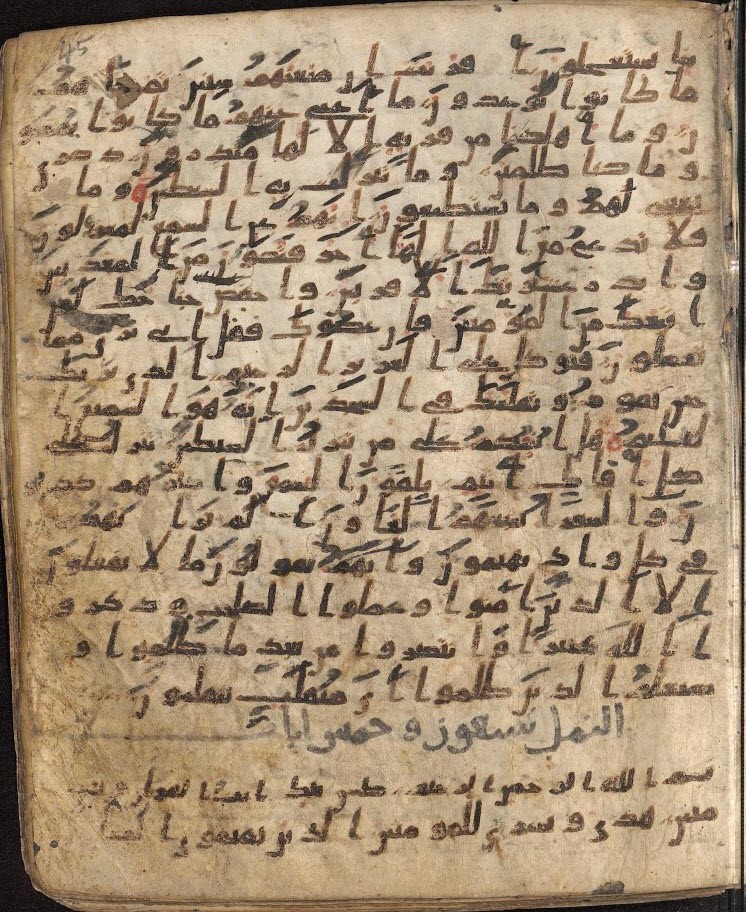 45
نا يستعجلون ا فريت ان متعنهم سنين ثم جا هم
ما كانوا يوعدون ما اغنى عنهم ما كانوا يمتعو
ن وما اهلكنا من قرية الا لها منذرون ذكرى
وما كنا ظلمين وما تنزلت به الشيطين وما
ينبغي لهم وما يستطيعون انهم عن السمع لمعزولون
فلا تدع مع الله الها اخر فتكون من المعذبين
وانذر عشيرتك الاقربين واخفض جناحك لمن
اتبعك من المومنين فان عصوك فقل اني بري مما
تعملون فتوكل على العزيز الرحيم الذي يريك
حين تقوم وتقلبك في السجدين انه هو السميع ا
لعليم هل انبيكم على من تنزل الشيطين تنزل على
كل افاك اثيم يلقون السمع واكثرهم كذبو
ن والشعرا يتبعهم الغاون الم تر انهم
في كل واد يهيمون وانهم يقولون ما لا يفعلون
الا الذين امنوا وعملوا الصلحت وذكرو
ا الله كثيرا وانتصروا من بعد ما ظلموا و
سيعلم الذين ظلموا اي منقلب ينقلبون
النمل تسعون وخمس ايات
بسم الله الرحمن الرحيم طس تلك ايت القران وكتب
مبين هدى وبشرى للمومنين الذين يقيمون الصلو